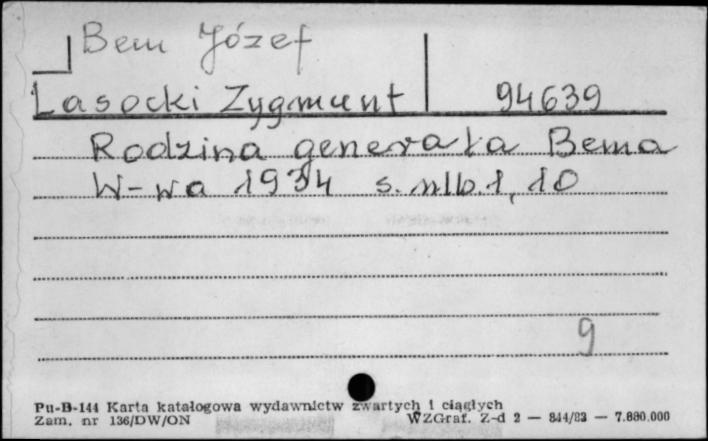 Bem Józef
Lasocki Zygmunt 94639
Rodzina generała Bema
W-wa 1934 s. nlb. 1, 10
9
Pu-B-144 Karta katalogowa wydawnictw zwartych i ciągłych
Zam. nr 136/DW/ON WZGraf. Z-d 2 — 844/83 — 7.880.000